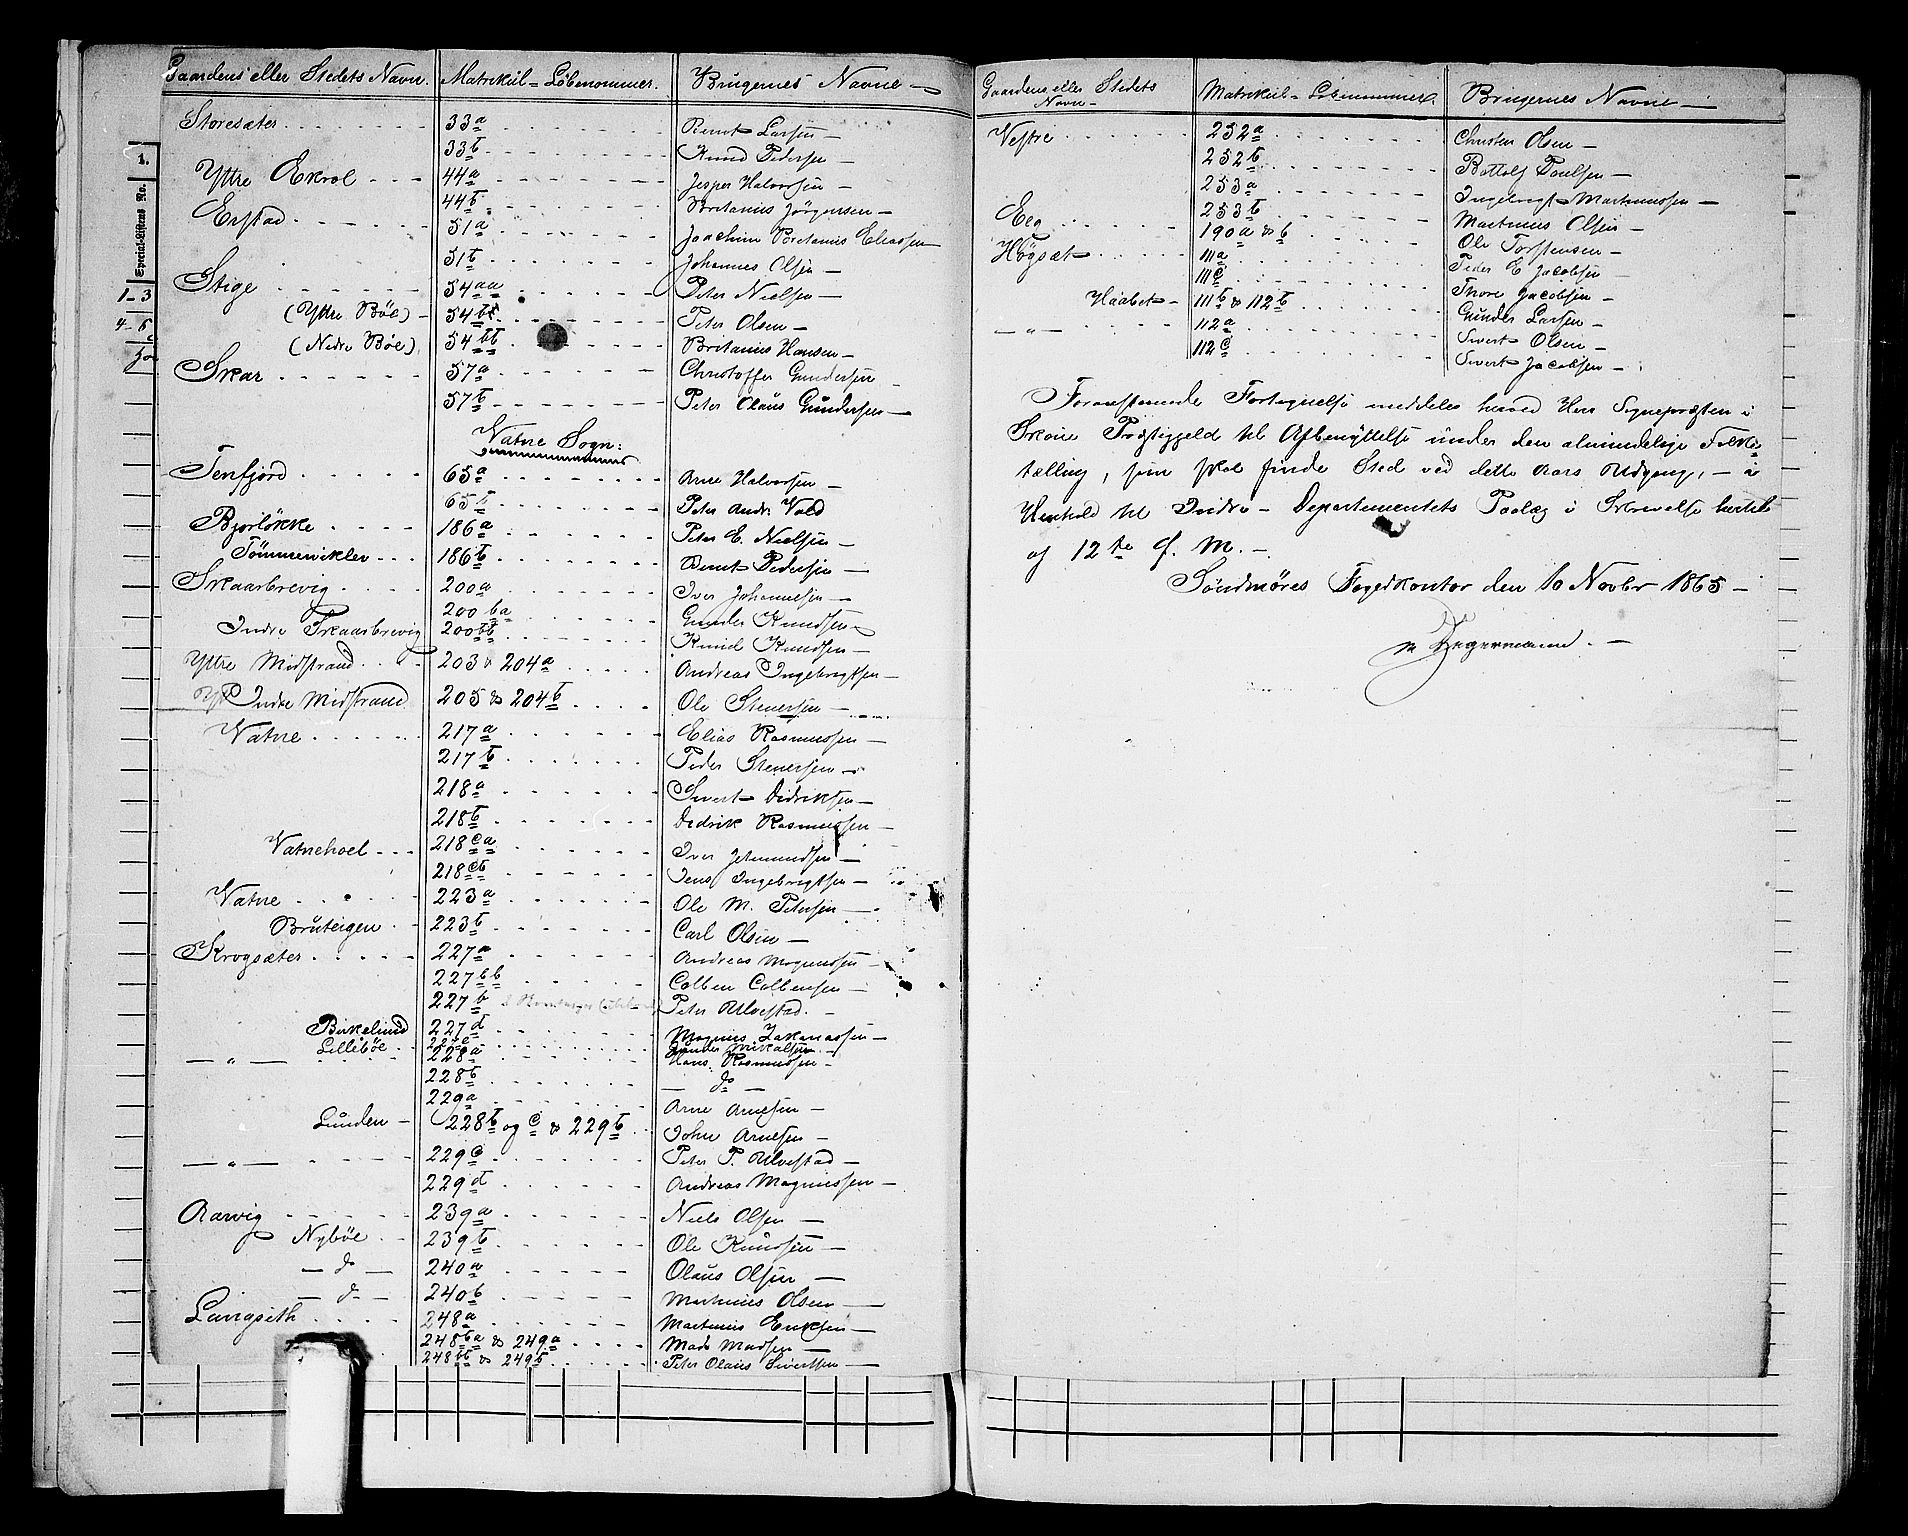 Gaardens eller Stedets Navn. Matrikül-Löbenommer. Brugernes Navne
Storesæter 33a Bernt Larsen
33b Knud Pedersen
Yttre Ekrol 44a Jesper Halvorsen
44b Britanius Jørgensen
Erstad 51a Joachim Britanius Eliassen
51b Johannes Olsen
Stige 54aa Peter Nielsen
(Yttre Böe) 54 Peter Olsen
(Nedre Böe) 54bb Britanius Hansen
Skar 57a Christoffer Gundersen
57b Peter Olaus Gundersen
Vatne Sogn:
Tenfjord 65a Arne Halvorsen
65b Peter Andr: Vold
Bjørløkke 186a Peter E. Nielsen
Tömmervikler 186b Bernt Pedersen
Skaarbrevig 200a Iver Johannesen
200 ba Gunder Knudsen
Indre Skaarbrevig 200bb Knud Knudsen
Yttre Midstrand 203 & 204a Andreas Ingebrigtsen
Indre Midstrand 205 & 204b Ole Stenersen
Vatne 217a Elias Rasmussen
217b Peder Stenersen
218a Sivert Didriksen
218b Didrik Rasmussen
Vatnehoel 218ca Iver Johannesen
218cb Jens Ingebrigtsen
Vatne 223a Ole M. Petersen
Brüteigen 223b Carl Olsen
Krogsæter 227a Andreas Magnussen
227bb Colben Colbensen
227b Peter Ulvestad.
Birkelund 227d Magnus Zakariassen
Lillebøe Gunder Mikalsen
— " — 228a Hans Rasmussen
228b — do —
229a Arne Arnesen
Lünden 228b og c & 229b John Arnesen
— " — 229c Peter P. Ulvestad
229d Andreas Magnussen
Aarvig 239a Niels Olsen
Nybøe 239b Ole Knudsen
— do — 240a Olaus Olsen
— do — 240b Martinus Olsen
Langseth 248a Martinus Eriksen
248ba & 249a Mads Madsen
248bb & 249b Peter Olaus Sivertsen
1.
Special-Listens No.
1-3
Gaardens eller Stedets Navn Matrikül-Löbenummer. Brugernes Navne
Vestre 252a Christen Olsen
252b Bottolf Poulsen
253a Ingebrigt Martinussen
253b Martinus Olsen
Eeg 190a & b Ole Torstensen
Høgsæt 111a Peder E. Jacobsen
111c Thore Jacobsen
Haabet 111b & 112b Gunder Larsen
— " — 112a Sivert Olsen
112c Sivert Jacobsen
Foranstaaende Fortegnelse meddeles herved Herr Sognepræsten i
Skoue Præstegjeld til Afbenyttelse ünder den almindelige Folke-
tælling, som skal finde Sted ved dette Aars Udgang, — i
Henhold til Indre-Departementets Paalæg i Skrivelse hertil
af 12te f. M. —
Søndmøres Fogedkontor den 10 Novbr 1865 —